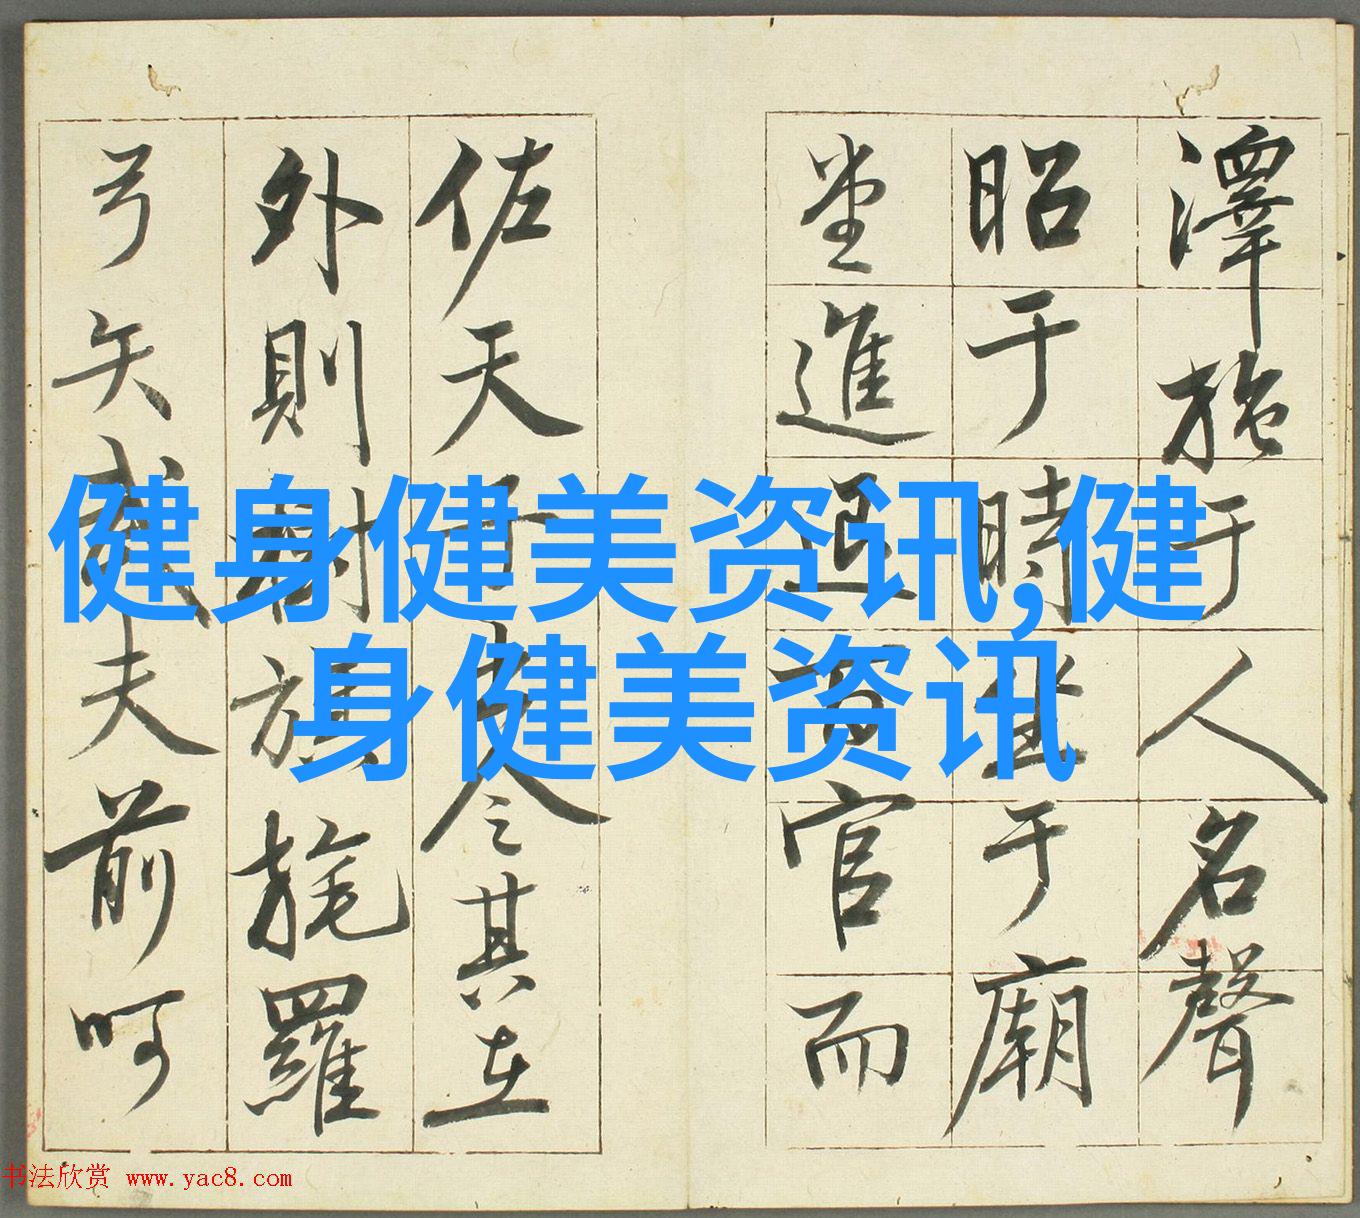 健身健美资讯,健
身健美资讯
澤施于人名聲
昭于時坐于廟
堂進退百官而
佐天子出令其在
外則樹旗旄羅
弓矢武夫前呵
书法欣赏 www.yac8.com